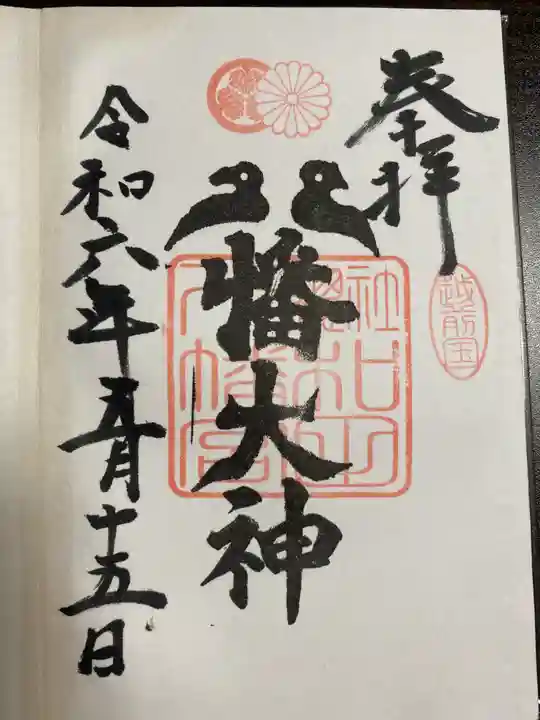 奉拝
越前国
八幡大神
令和六年五月十五日